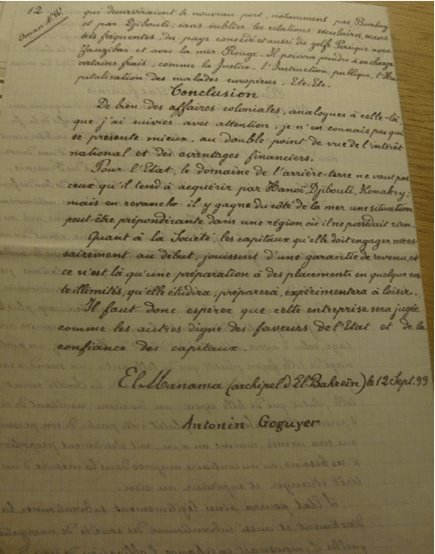 12
Oman N.W.
qui desserviraient le nouveau port, notamment par Bombay
et par Djibouti, sans oublier les relations séculaires, encore
très fréquentes, du pays considéré aussi du golfe Persique avec
Zanzibar et avec la mer Rouge. Il pourra prendre à sa charge
certains frais, comme la Justice, l'Instruction publique, l'Hos-
pitalisation des malades européens, Etc. Etc.
Conclusion
De bien des affaires coloniales, analogues à celle-là
que j'ai suivies avec attention, je n'en connais pas qui
se présente mieux, au double point de vue de l'intérêt
national et des avantages financiers.
Pour l'Etat, le domaine de l'arrière-terre ne vaut pas
ceux qu'il tend à acquérir par Hanoï, Djibouti, Konakry;
mais en revanche il y gagne du côté de la mer une situation
peut-être prépondérante dans une région où il ne possédait rien.
Quant à la Société, les capitaux qu'elle doit engager néces-
sairement au début, jouissent d'une garantie de revenu, et
ce n'est là qu'une préparation à des placements en quelque sor-
te illimités, qu'elle étudira, préparera, expérimentera à loisir.
Il faut donc espérer que cette entreprise sera jugée
comme les autres digne des faveurs de l'Etat et de la
confiance des capitaux.
El Manama (archipel d'El Bahreïn) le 12 Sept. 99
Antonin Goguyer